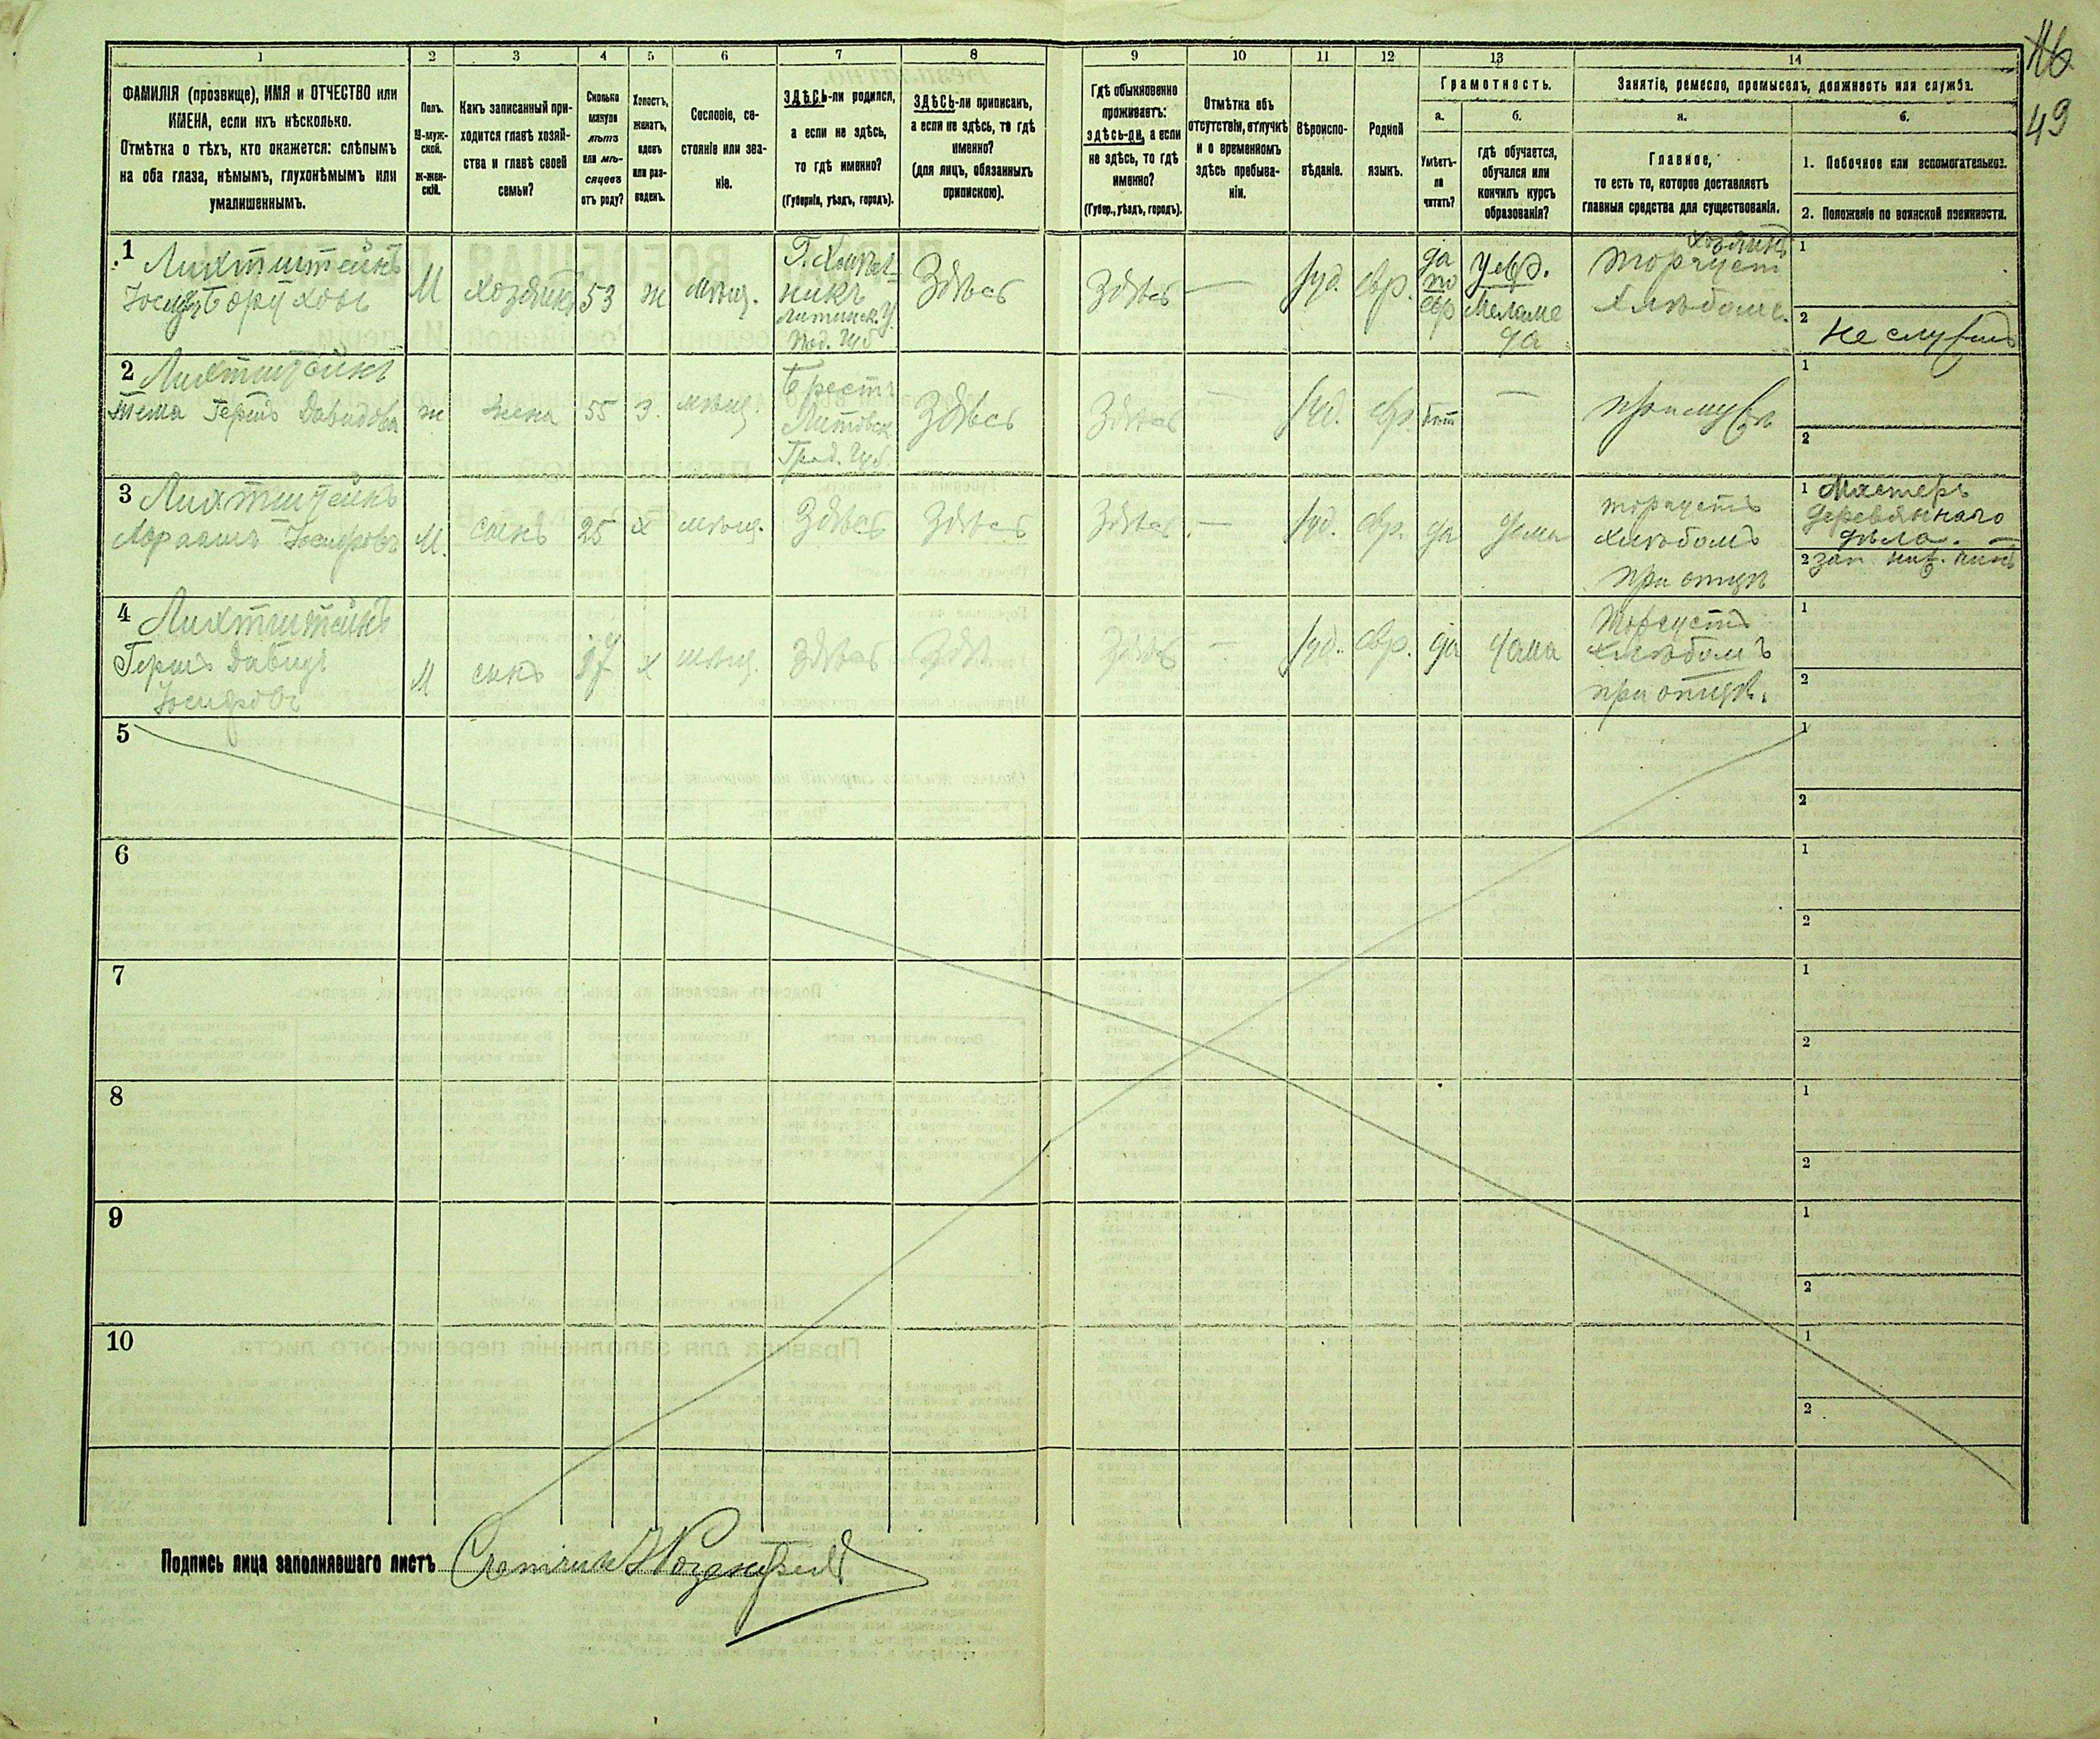 116
49
1 2 3 4 5 6 7 8 9 10 11 12 13 14
ФАМИЛІЯ (прозвище), ИМЯ и ОТЧЕСТВО или
ИМЕНА, если ихъ нѣсколько.
Отмѣтка о тѣхъ, кто окажется: слѣпымъ
на оба глаза, нѣмымъ, глухонѣмымъ или
умалишеннымъ.
Полъ.
М-муж-
ской.
Ж-жен-
скій.
Какъ записанный при-
ходится главѣ хозяй-
ства и главѣ своей
семьи?
Сколько
минуло
лѣтъ
или мѣ-
сяцевъ
отъ роду?
Холостъ,
женатъ,
вдовъ
или раз-
веденъ.
Сословіе, со-
стояніе или зва-
ніе.
ЗДѢСЬ-ли родился,
а если не здѣсь,
то гдѣ именно?
(Губернія, уѣздъ, городъ).
ЗДѢСЬ-ли приписанъ,
а если не здѣсь, то гдѣ
именно?
(для лицъ, обязанныхъ
припискою).
Гдѣ обыкновенно
проживаетъ:
здѣсь-ли, а если
не здѣсь, то гдѣ
именно?
(Губер., уѣздъ, городъ).
Отмѣтка объ
отсутствіи, отлучкѣ
и о временномъ
здѣсь пребыва-
ніи.
Вѣроиспо-
вѣданіе.
Родной
языкъ.
Грамотность.
а.
Умѣетъ-
ли
читать?
б.
гдѣ обучается,
обучался или
кончилъ курсъ
образованія?
Занятіе, ремесло, промыселъ, должность или служба.
а.
Главное,
то есть то, которое доставляетъ
главныя средства для существованія.
б.
1. Побочное или вспомогательное.
2. Положеніе по воинской повинности.
1 Лихтштейнъ
Іосифъ Боруховъ
М
хозяинъ
53
ж
мѣщ.
Г. Хмѣль-
никъ
Литинск. У.
Под. Губ
Здѣсь
Здѣсь
—
Іуд.
евр.
да
по
евр
у евр.
Меламе
да
хозяинъ
торгуетъ
хлѣбомъ.
1
2 не служилъ
2 Лихтштейнъ
Тема Гершъ Давидова
ж
жена
55
з.
мѣщ.
Брестъ
Литовск
Грод. Губ
Здѣсь
Здѣсь
—
Іуд.
евр.
нѣтъ
—
при мужѣ
1
2
3 Лихтштейнъ
Абрамъ Іосифовъ
М.
сынъ
25
х
мѣщ.
Здѣсь
Здѣсь
Здѣсь
—
Іуд.
евр.
да
дома
торгуетъ
хлѣбомъ
при отцѣ
1 Мастеръ
деревяннаго
дѣла. —
2 зап. ниж. чинъ
4 Лихтштейнъ
Гершъ Давидъ
Іосифовъ
М
сынъ
х
мѣщ.
Здѣсь
Здѣс
Здѣсь
—
Іуд.
евр.
да
дома
Торгуетъ
хлѣбомъ
при отцѣ.
1
2
5
1
2
6
1
2
7
1
2
8
1
2
9
1
2
10
1
2
Подпись лица заполнявшаго листъ Счетчикъ